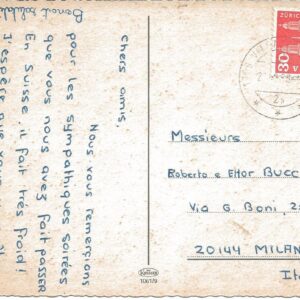 chers amis,
Nous vous remerçions
pour les sympathiques soirées
que vous nous avez fait passer
En Suisse il fait très froid!
J'espère que vous
Messieurs
Roberto e Ettor BUCC
Via G. Boni, 2
20144 MILAN
It
ZÜRICH
30
106179